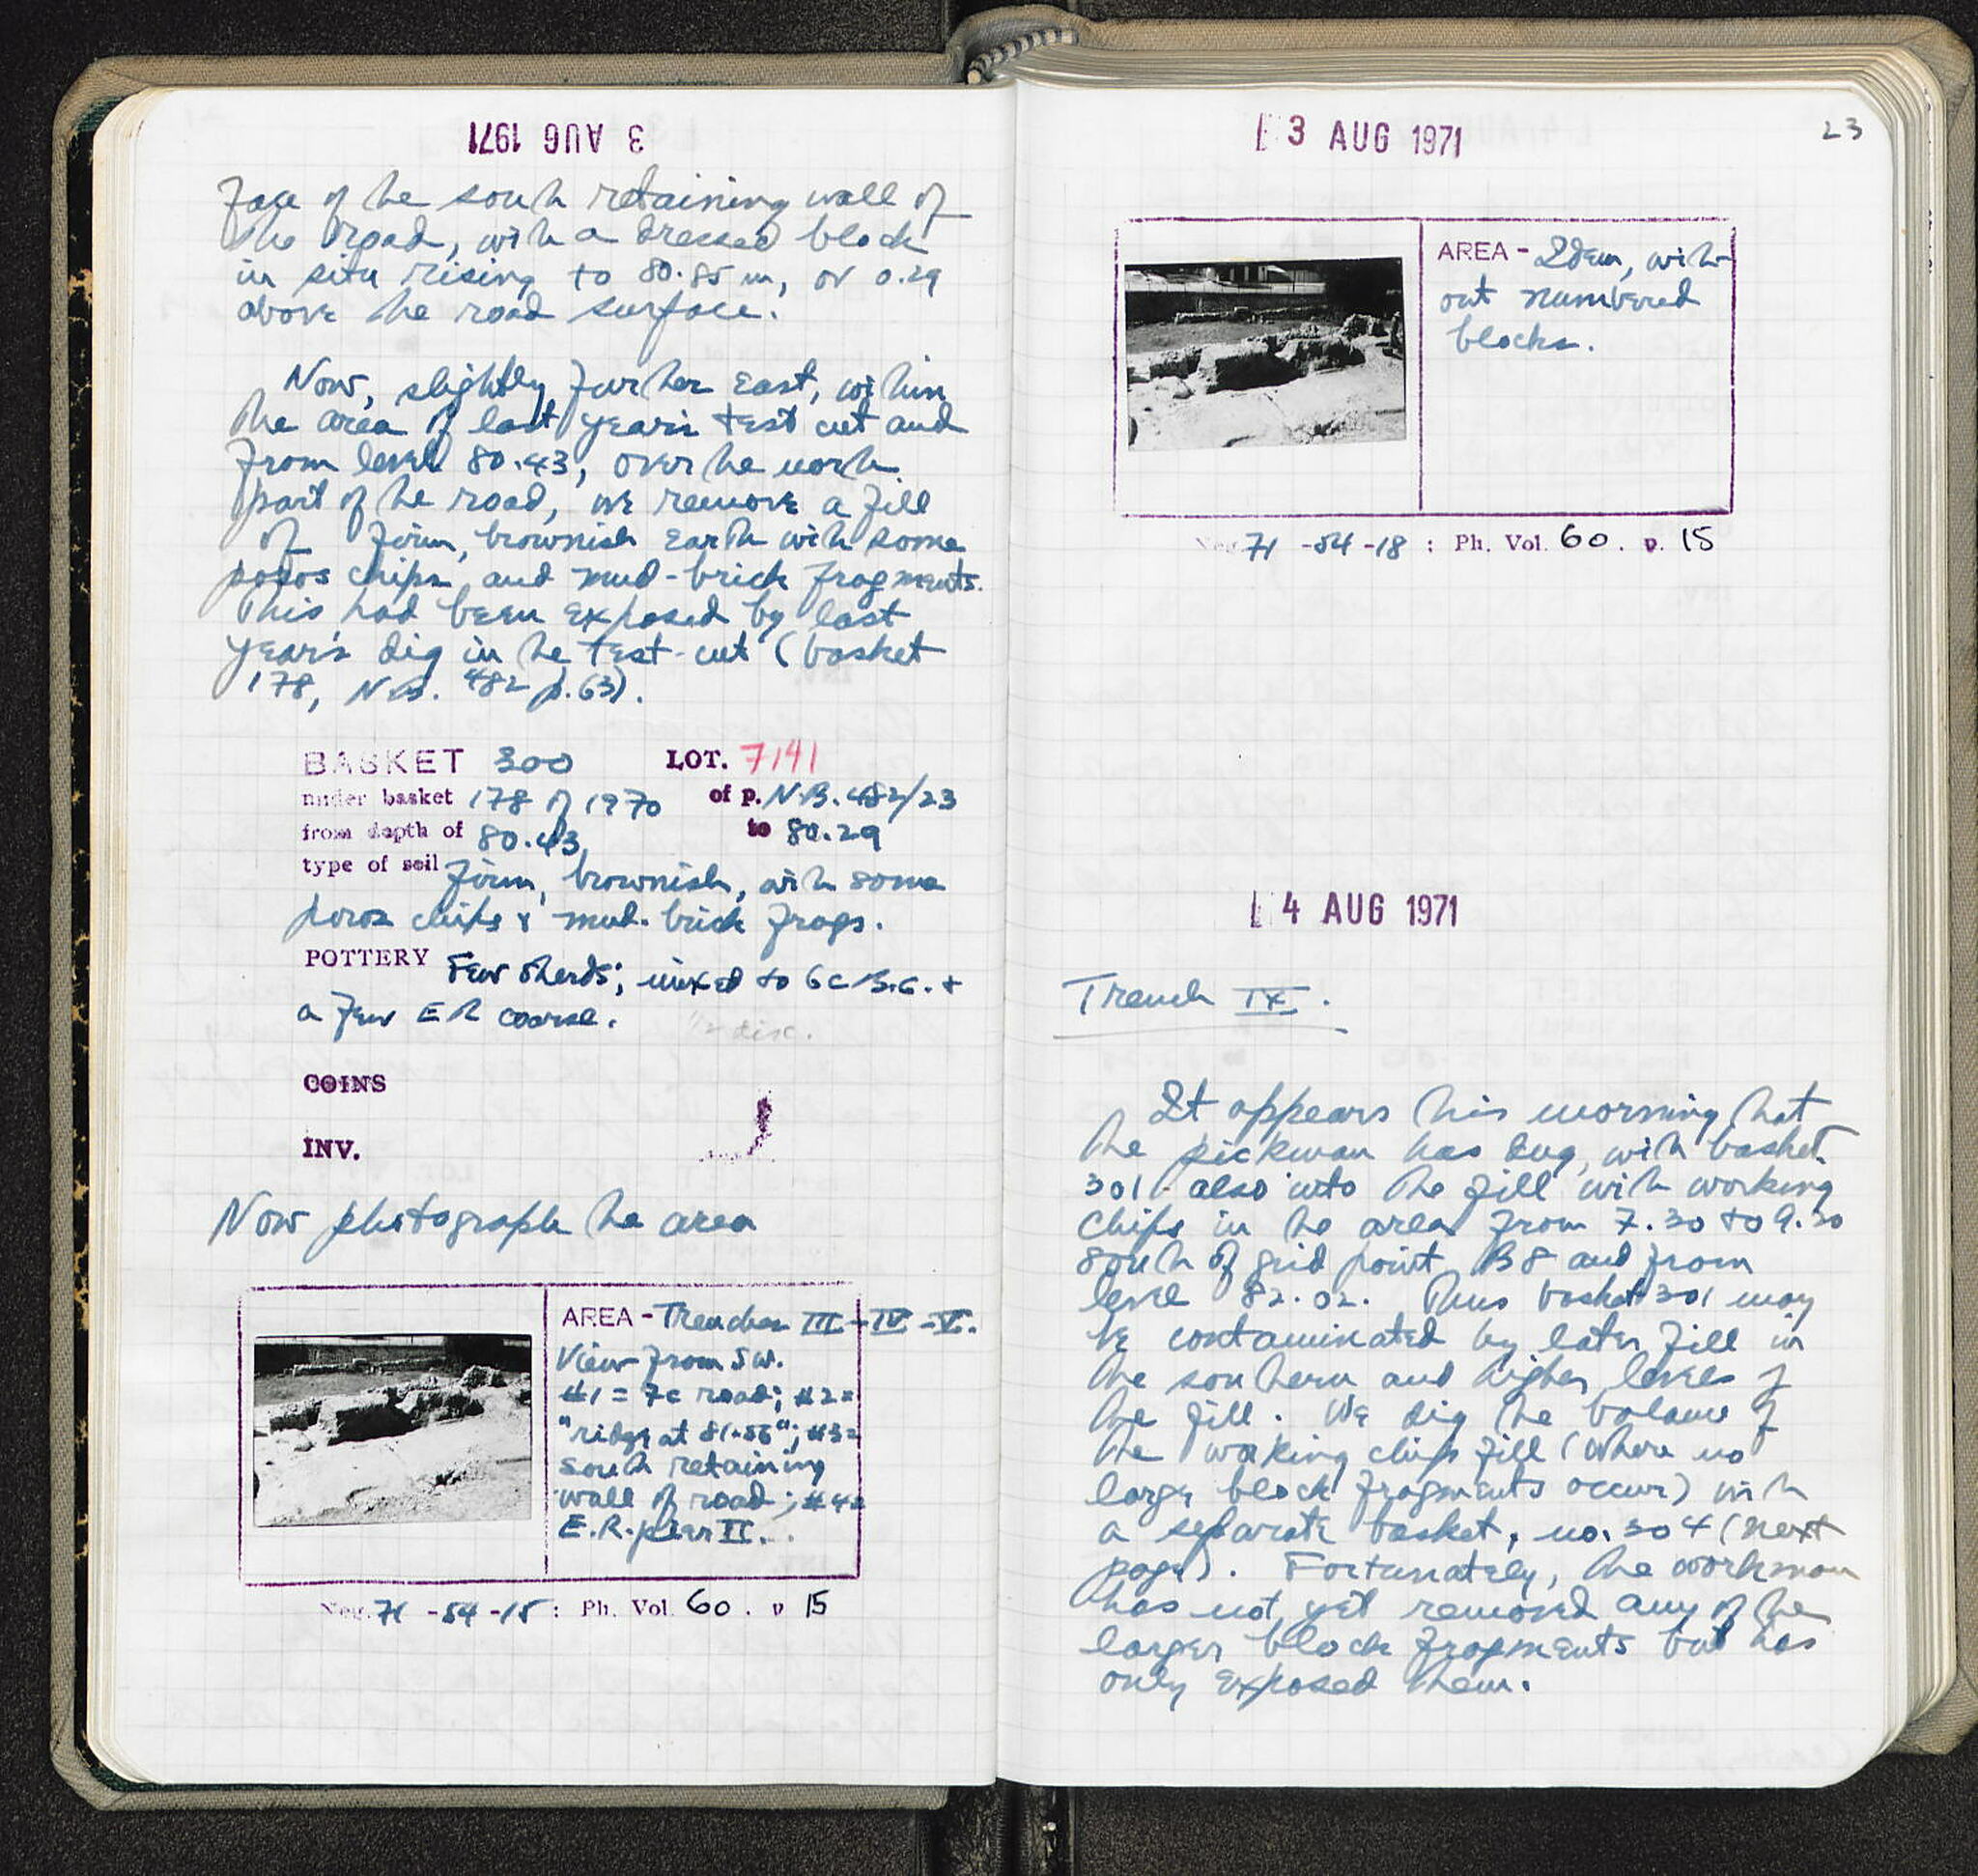 3 AUG 1971
face of the south retaining wall of
the road, with a dressed block
in situ rising to 80.85 m, or 0.29
above the road surface.
Now, slightly further east, within
the area of last year's test cut and
from level 80.43, over the north
part of the road, we remove a fill
of firm, brownish earth with some
poros chips and mud-brick fragments.
This had been exposed by last
year's dig in the test-cut (basket
178, N.B. 482 p.63).
BASKET 300 LOT. 7141
under basket 178 of 1970 of p. N.B. 482/23
from depth of 80.43 to 80.29
type of soil firm, brownish, with some
poros chips & mud-brick frags.
POTTERY Few sherds; mixed to 6c B.C. +
a few ER coarse.
1/2 disc.
COINS
INV.
Now photograph the area
AREA - Trenches III-IV-V.
View from SW.
#1 = 7c road; #2=
"ridge at 81.56"; #3=
south retaining
wall of road; #4=
E.R. pier II.
Neg. 71-54-15 : Ph. Vol. 60. p 15
3 AUG 1971
23
AREA - Idem, with-
out numbered
blocks.
Neg. 71-54-18 : Ph. Vol. 60. p. 15
4 AUG 1971
Trench IX.
It appears this morning that
the pickman has dug, with basket
301 also into the fill with working
chips in the area from 7.30 to 9.30
south of grid point B8 and from
level 82.02. Thus basket 301 may
be contaminated by later fill in
the southern and higher levels of
the fill. We dig the balance of
the working chips fill (where no
large block fragments occur) with
a separate basket, no. 304 (next
page). Fortunately, the workman
has not yet removed any of the
larger block fragments but has
only exposed them.